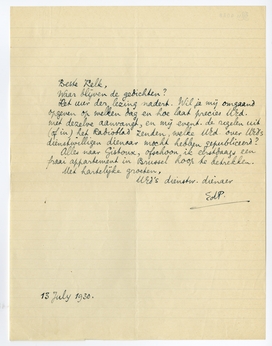 Beste Eelk,
Waar blijven de gedichten?
Het uur der lezing nadert. Wil je mij omgaand
opgeven op welken dag en hoe laat precies UEd.
met dezelve aanvangt, en mij event. de regelen uit
(of in) het Radioblad zenden, welke UEd. over UEd's
dienstwilligen dienaar mocht hebben gepubliceerd?
Alles naar Gistoux, ofschoon ik eerstdaags een
fraai appartement in Brussel hoop te betrekken.
Met hartelijke groeten,
UEd's dienstw. dienaer
EdP.
13 July 1930.